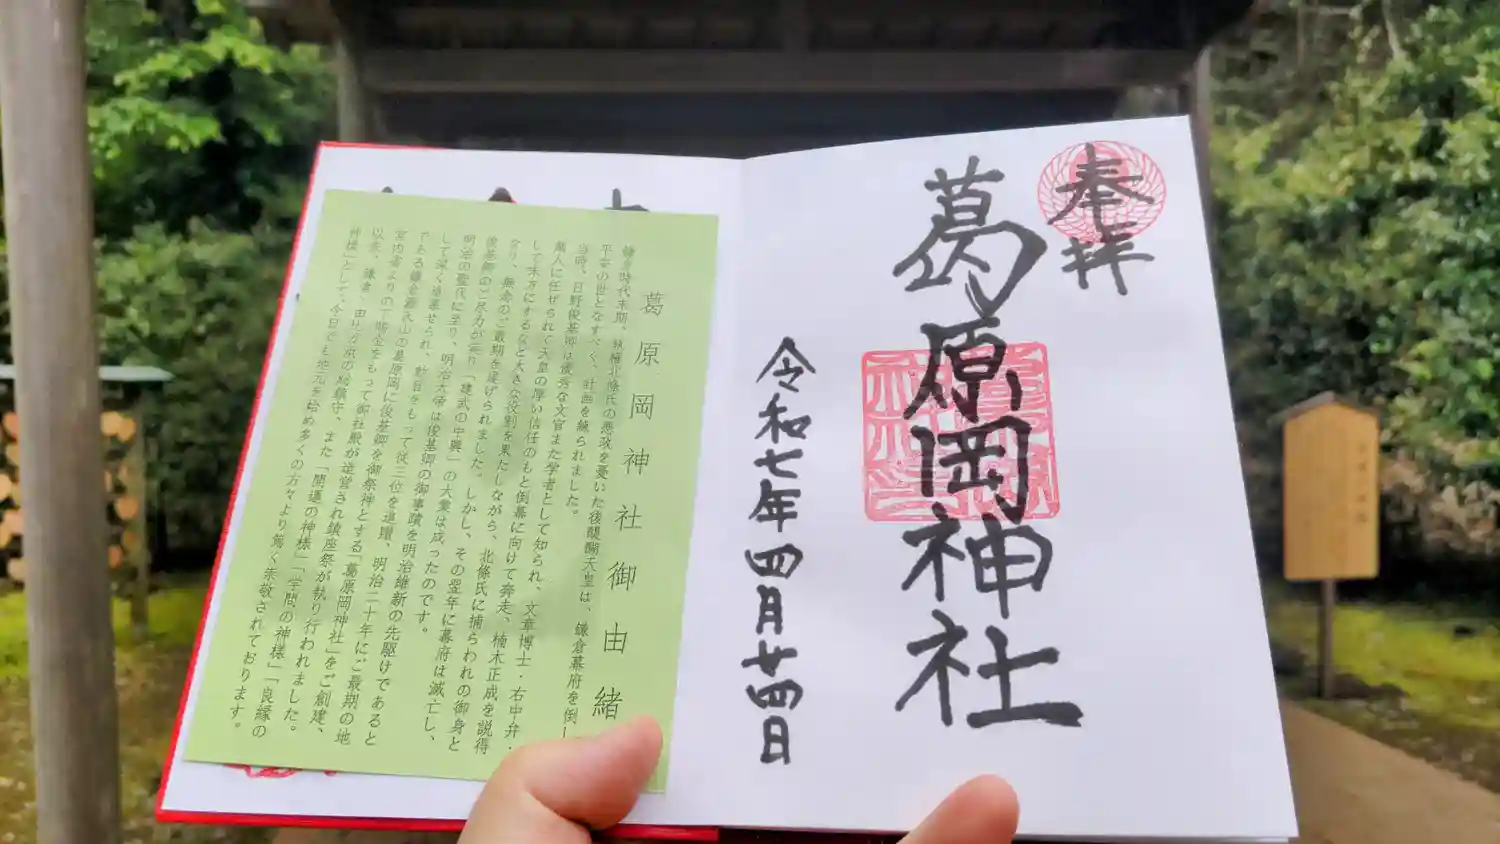 奉拝
葛原岡神社
令和七年四月廿四日
葛原岡神社御由緒
鎌倉時代末期、執権北條氏の悪政を憂いた後醍醐天皇は、鎌倉幕府を倒し
平安の世となすべく、計画を練られました。
当時、日野俊基卿は優秀な文官また学者として知られ、文章博士・右中弁・
蔵人に任ぜられて天皇の厚い信任のもと倒幕に向けて奔走、楠木正成を説得
して味方にするなど大きな役割を果たしながら、北條氏に捕らわれの御身と
なり、無念のご最期を遂げられました。しかし、その翌年に幕府は滅亡し、
俊基卿のご尽力が実り「建武の中興」の大業は成ったのです。
明治の聖代に至り、明治大帝は俊基卿の御事蹟を明治維新の先駆けであると
して深く追慕せられ、勅旨をもって従三位を追贈、明治二十年にご最期の地
である鎌倉梶原山の葛原岡に俊基卿を御祭神とする「葛原岡神社」をご創建、
宮内省よりの下賜金をもって御社殿が造営され鎮座祭が執り行われました。
以来、鎌倉、由比ガ浜の総鎮守、また「開運の神様」「学問の神様」「良縁の
神様」として、今日でも地元を始め多くの方々より篤く崇敬されております。